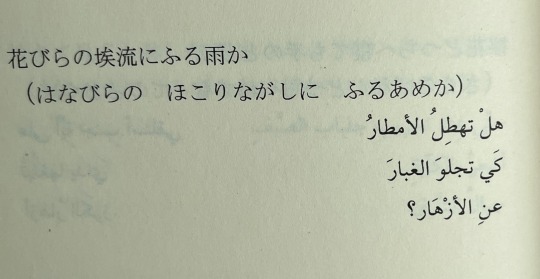 花びらの埃流にふる雨か
(はなびらの　ほこりながしに　ふるあめか)
هلْ تهطِلُ الأمطارُ
كَي تجلوَ الغبارَ
عنِ الأزْهَار؟